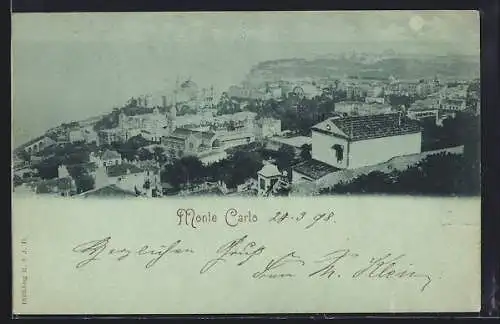 Monte Carlo 24.3.98.
Herzlichen Gruß
Th. Klein